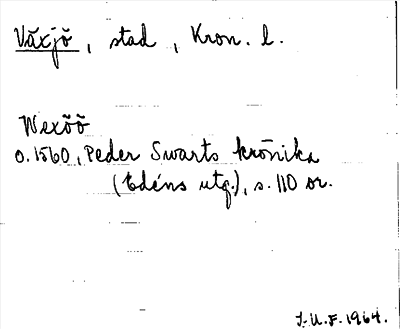 Växjö, stad, Kron. l.
Wexöö
o. 1560, Peder Swarts krönika
(Edéns utg.), s. 110 or.
I.U.F. 1964.